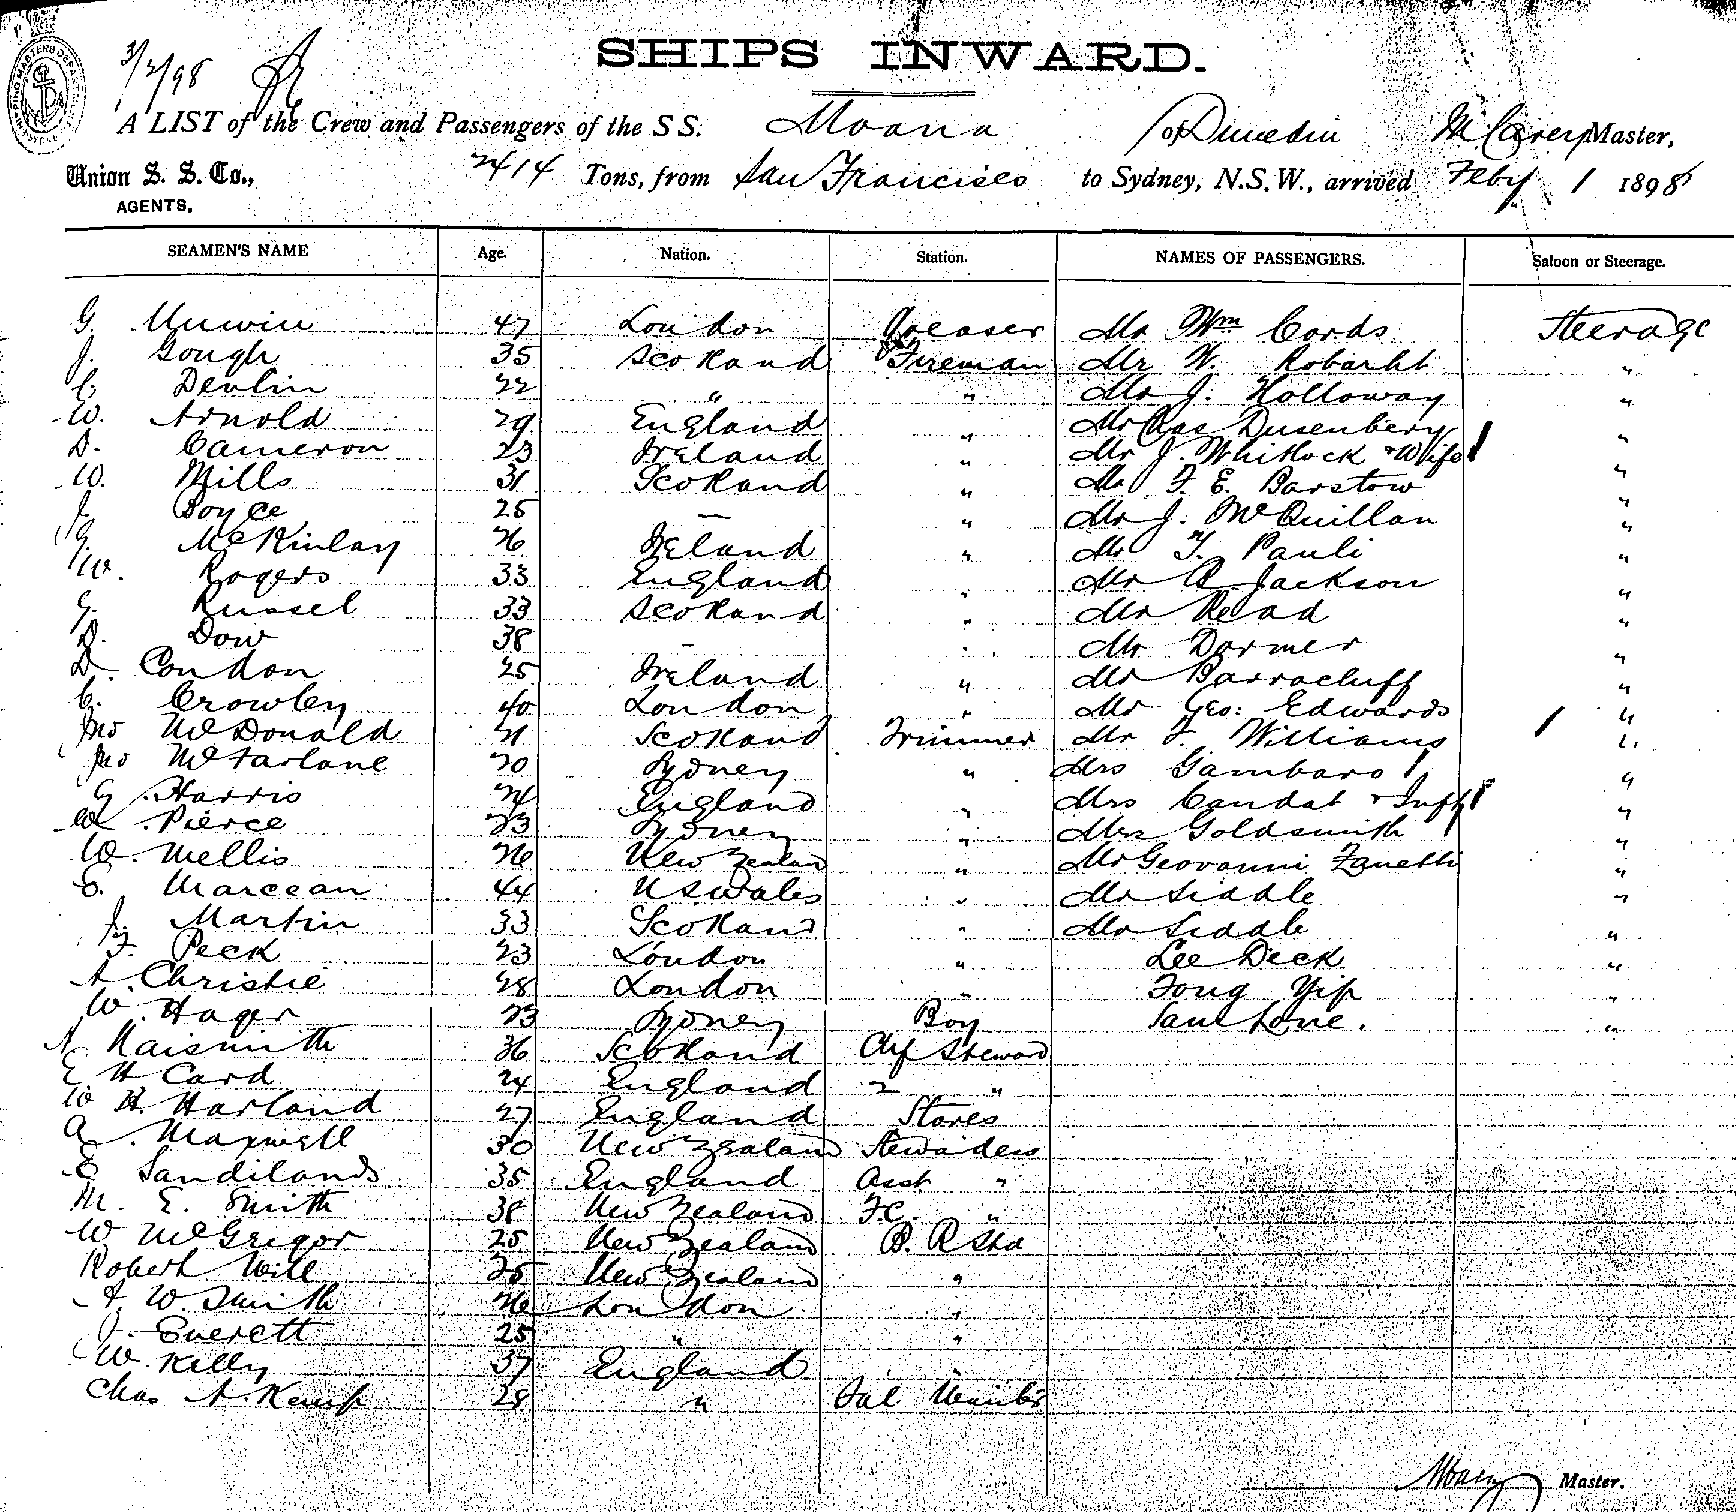 3/2/98
SHIPS INWARD.
A LIST of the Crew and Passengers of the SS. Moana of Dunedin M Carey Master,
Union S. S. Co., 2414 Tons, from San Francisco to Sydney, N.S.W., arrived Feby 1 1898
AGENTS,
SEAMEN'S NAME Age. Nation. Station. NAMES OF PASSENGERS. Saloon or Steerage.
G. Unwin 47 London Greaser Mr Wm Cords Steerage
J. Gough 35 Scotland Fireman Mr W. Robarht "
C. Devlin 22 " " Mr J. Holloway "
W. Arnold 29 England " Mr Chas Dusenbery "
D. Cameron 23 Ireland " Mr J. Whitlock & Wife "
W. Mills 31 Scotland " Mr F. E. Barstow "
J. Boyce 25 — " Mr J. McQuillan "
G McKinlay 26 Ireland " Mr T. Pauli "
W. Rogers 33 England " Mr A Jackson "
G. Russel 33 Scotland " Mr Read "
D. Dow 38 - " Mr Dormer "
D. Condon 25 Ireland " Mr Barracluff "
C. Crowley 40 London " Mr Geo: Edwards "
Jno McDonald 21 Scotland Trimmer Mr F. Williams "
Jno McFarlane 20 Sydney " Mrs Gambaro "
G. Harris 24 England " Mrs Candat & Inft "
W. Pierce 23 Sydney " Mrs Goldsmith "
W. Mellis 26 New Zealand " Mr Geovanni Zanetti "
C. Marcean 44 N.S.Wales " Mr Siddle "
Jn Martin 33 Scotland " Mr Siddle "
F. Peck 23 London " Lee Deck "
A. Christie 28 London " Fong Yip "
W. Hager 23 Sydney Boy "
Naismith 36 Scotland Chf Steward
E H Card 24 England 2 "
W H. Harland 27 England Stores
A. Maxwell 30 New Zealand Stewardess
E Sandilands 35 England Asst "
M. E. Smith 38 New Zealand F.C. "
W McGregor 25 New Zealand B. R Std
Robert Will 25 New Zealand "
A. W. Smith 26 London "
J. Everett 25 " "
W. Kelly 37 England "
Chas A. Kemp 28 " Sal
Master.